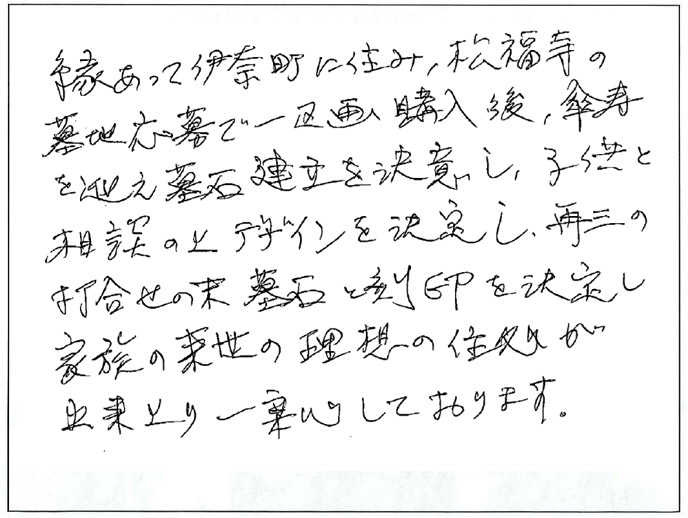 縁あって伊奈町に住み、松福寺の
墓地応募で一区画購入後、傘寿
を迎え墓石建立を決意し、子供と
相談の上デザインを決定し、再三の
打合せの末墓石と刻印を決定し
家族の来世の理想の住処が
出来上り一安心しております。